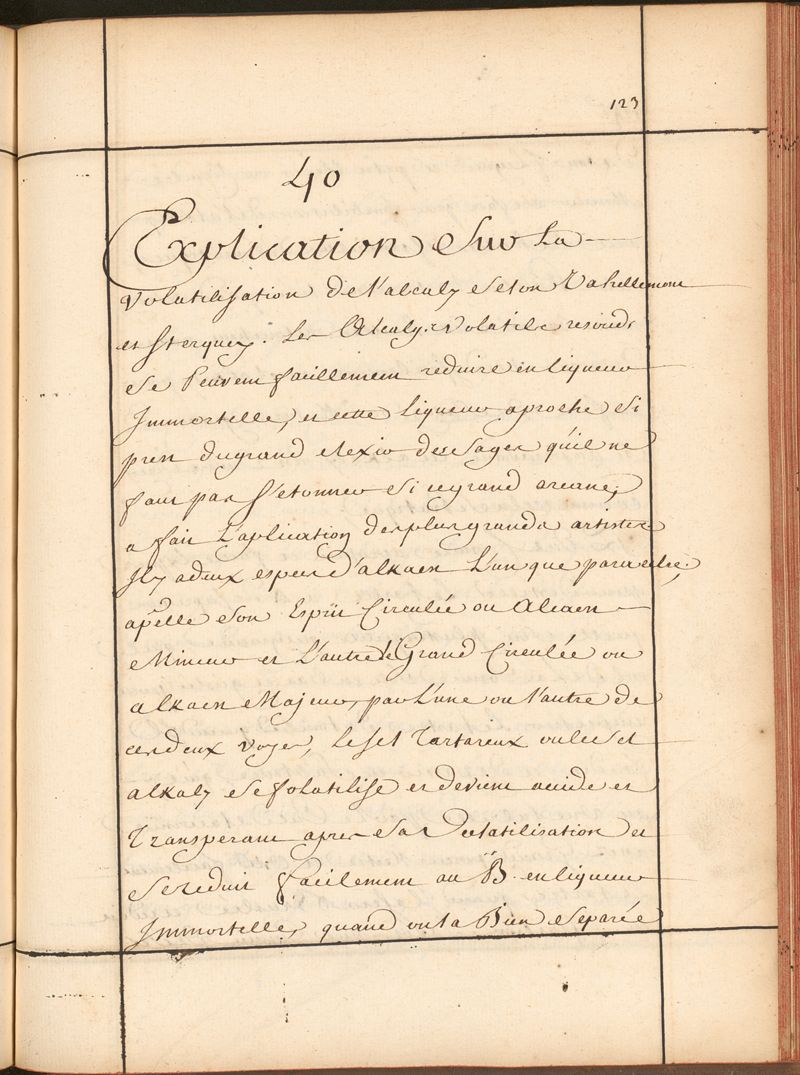 123
40
Explication Sur La
Volatilisation de l'alcaly Selon Vahellemont
et sterquey. Les Alcalys Volatils resouds
Se Peuvent facillement reduire en liqueur
Immortelle, et cette Liqueur aproche Si
pres du grand elexir des Sages qu'il ne
faut pas s'etonner Si ce grand arcane,
a fait L'aplication des plus grands artistes
Il y a deux espece d'alkaen L'un que paracelse,
apelle Son Esprit Circulée ou Alcaen
Mineur et L'autre le Grand Circulée ou
alkaen Majeur, par L'une ou l'autre de
ces deux voyes, Le Sel Tartareux ou le Sel
alkaly Se folatilise et devient acide et
Transperant apres Sa Volatilisation et
Se reduit facilement au B. en liqueur
Immortelle, quand on l'a Bien Separée